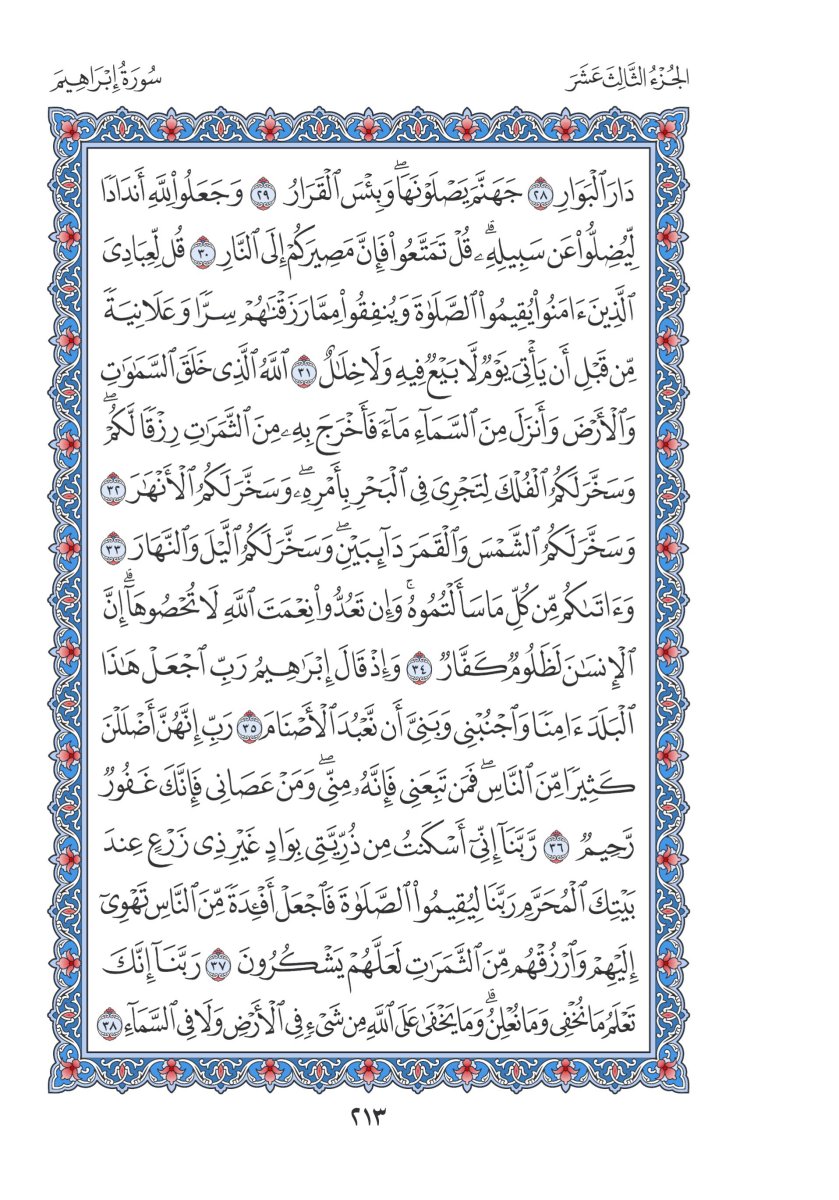 الجُزْءُ الثَّالِثَ عَشَرَ
سُورَةُ إِبْرَاهِيمَ
دَارَ ٱلْبَوَارِ ٢٨ جَهَنَّمَ يَصْلَوْنَهَاۖ وَبِئْسَ ٱلْقَرَارُ ٢٩ وَجَعَلُوا۟ لِلَّهِ أَندَادًا
لِّيُضِلُّوا۟ عَن سَبِيلِهِۦۗ قُلْ تَمَتَّعُوا۟ فَإِنَّ مَصِيرَكُمْ إِلَى ٱلنَّارِ ٣٠ قُل لِّعِبَادِىَ
ٱلَّذِينَ ءَامَنُوا۟ يُقِيمُوا۟ ٱلصَّلَوٰةَ وَيُنفِقُوا۟ مِمَّا رَزَقْنَٰهُمْ سِرًّا وَعَلَانِيَةً
مِّن قَبْلِ أَن يَأْتِىَ يَوْمٌ لَّا بَيْعٌ فِيهِ وَلَا خِلَٰلٌ ٣١ ٱللَّهُ ٱلَّذِى خَلَقَ ٱلسَّمَٰوَٰتِ
وَٱلْأَرْضَ وَأَنزَلَ مِنَ ٱلسَّمَآءِ مَآءً فَأَخْرَجَ بِهِۦ مِنَ ٱلثَّمَرَٰتِ رِزْقًا لَّكُمْۖ
وَسَخَّرَ لَكُمُ ٱلْفُلْكَ لِتَجْرِىَ فِى ٱلْبَحْرِ بِأَمْرِهِۦۖ وَسَخَّرَ لَكُمُ ٱلْأَنْهَٰرَ ٣٢
وَسَخَّرَ لَكُمُ ٱلشَّمْسَ وَٱلْقَمَرَ دَآئِبَيْنِۖ وَسَخَّرَ لَكُمُ ٱلَّيْلَ وَٱلنَّهَارَ ٣٣
وَءَاتَىٰكُم مِّن كُلِّ مَا سَأَلْتُمُوهُۚ وَإِن تَعُدُّوا۟ نِعْمَتَ ٱللَّهِ لَا تُحْصُوهَآۗ إِنَّ
ٱلْإِنسَٰنَ لَظَلُومٌ كَفَّارٌ ٣٤ وَإِذْ قَالَ إِبْرَٰهِيمُ رَبِّ ٱجْعَلْ هَٰذَا
ٱلْبَلَدَ ءَامِنًا وَٱجْنُبْنِى وَبَنِىَّ أَن نَّعْبُدَ ٱلْأَصْنَامَ ٣٥ رَبِّ إِنَّهُنَّ أَضْلَلْنَ
كَثِيرًا مِّنَ ٱلنَّاسِۖ فَمَن تَبِعَنِى فَإِنَّهُۥ مِنِّىۖ وَمَنْ عَصَانِى فَإِنَّكَ غَفُورٌ
رَّحِيمٌ ٣٦ رَّبَّنَآ إِنِّىٓ أَسْكَنتُ مِن ذُرِّيَّتِى بِوَادٍ غَيْرِ ذِى زَرْعٍ عِندَ
بَيْتِكَ ٱلْمُحَرَّمِ رَبَّنَا لِيُقِيمُوا۟ ٱلصَّلَوٰةَ فَٱجْعَلْ أَفْـِٔدَةً مِّنَ ٱلنَّاسِ تَهْوِىٓ
إِلَيْهِمْ وَٱرْزُقْهُم مِّنَ ٱلثَّمَرَٰتِ لَعَلَّهُمْ يَشْكُرُونَ ٣٧ رَبَّنَآ إِنَّكَ
تَعْلَمُ مَا نُخْفِى وَمَا نُعْلِنُۗ وَمَا يَخْفَىٰ عَلَى ٱللَّهِ مِن شَىْءٍ فِى ٱلْأَرْضِ وَلَا فِى ٱلسَّمَآءِ ٣٨
٢١٣